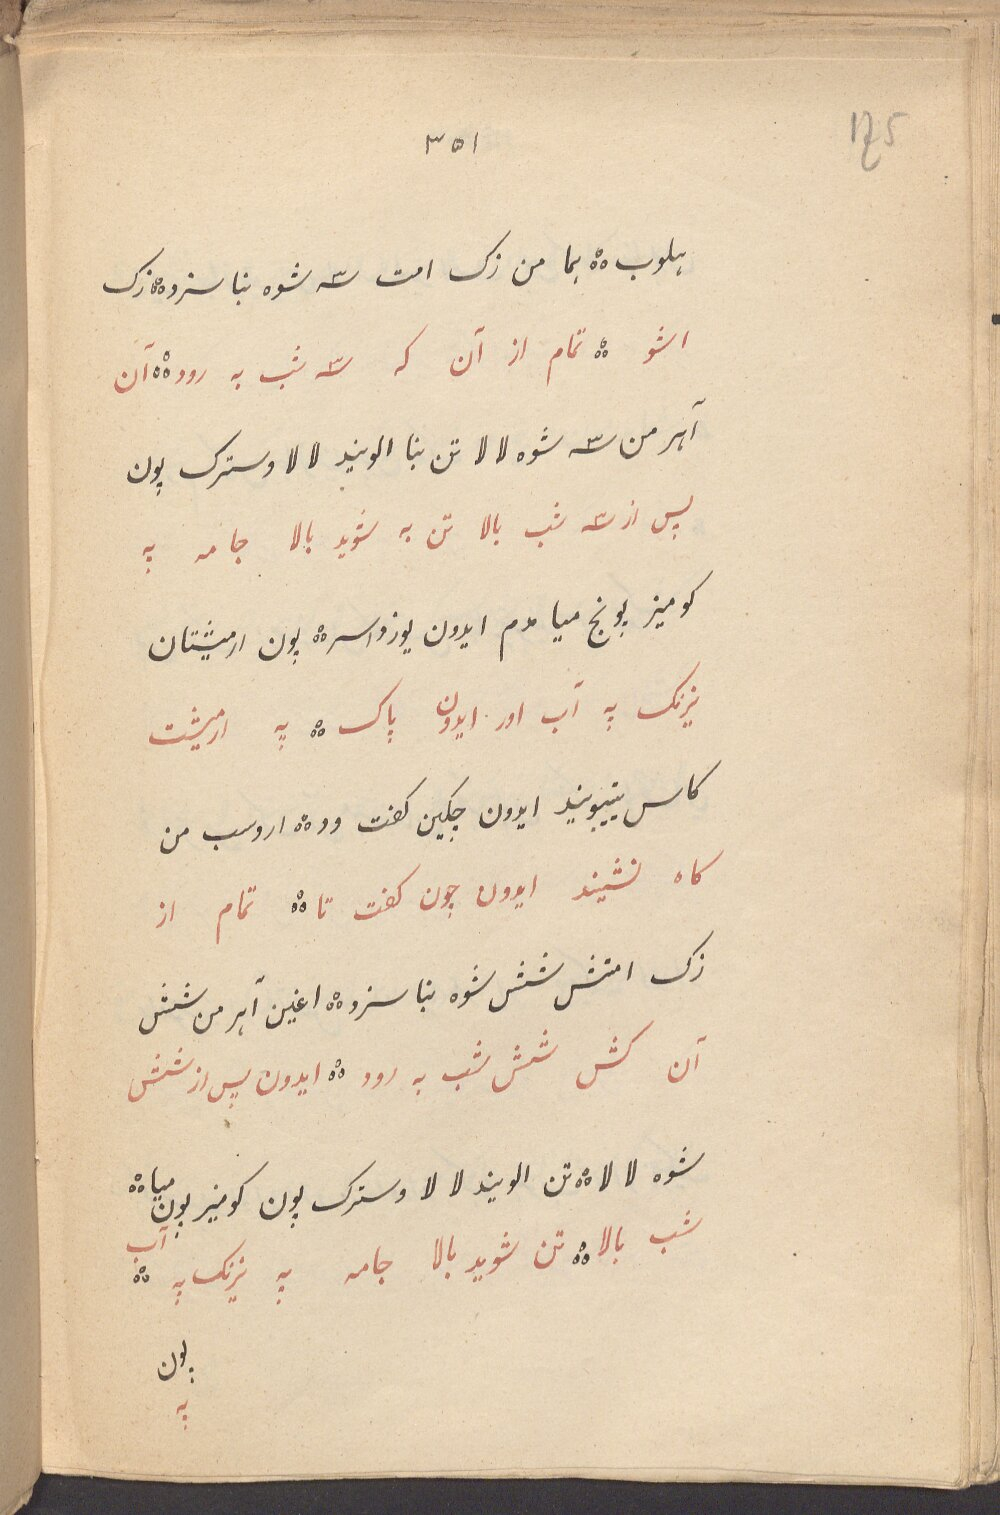 175
۳۵۱
هلوب ؞ بما من زک امت سه شوه بنا سزو ؞ زک
اشو ؞ تمام از آن که سه شب به رود ؞ آن
آهر من سه شوه لا لا تن بنا الویند لا لا وسترک پون
پس از سه شب بالا تن به شوید بالا جامه په
کومیز پونج میا مدم ایدون یوزداسر ؞ پون ارمیشتان
نیرنک په آب اور ایدون پاک ؞ په ارمیشت
کاس یتیبویند ایدون چکین کفت ود ؞ اروسب من
کاه نشیند ایدون چون کفت تا ؞ تمام از
زک امتش شش شوه بنا سزو ؞ اغین آهر من شش
آن کش شش شب به رود ؞ ایدون پس از شش
شوه لا لا ؞ تن الویند لا لا وسترک پون کومیز پون میا ؞
شب بالا ؞ تن شوید بالا جامه په نیرنک په آب ؞
پون
په